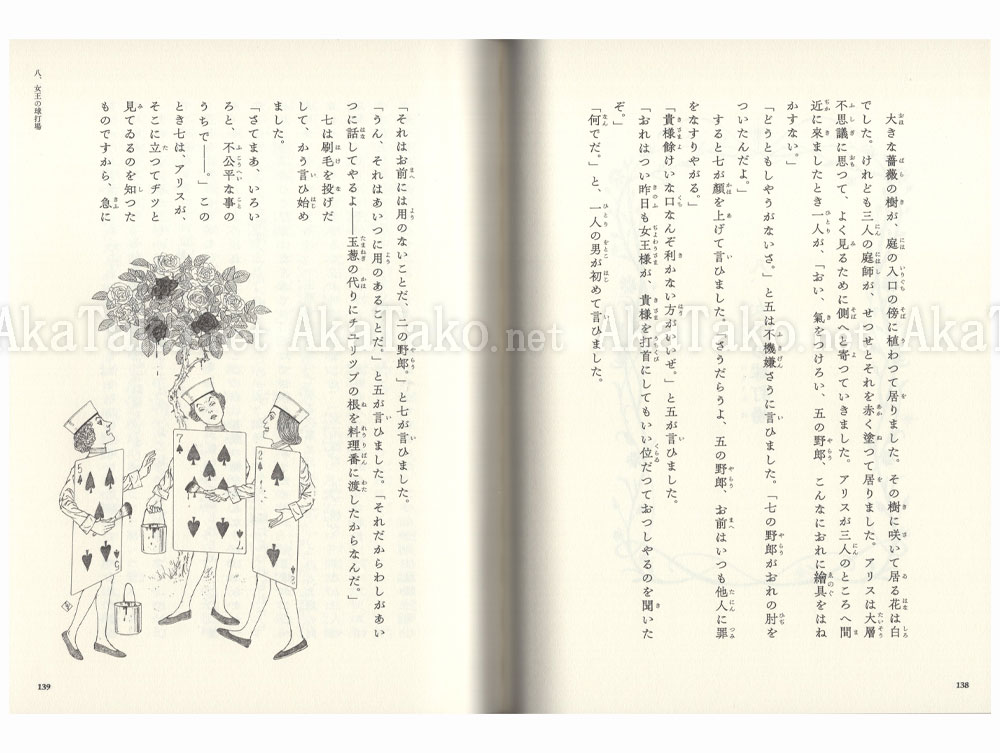 大きな薔薇の樹が、庭の入口の傍に植わつて居りました。その樹に咲いて居る花は白
でした。けれども三人の庭師が、せつせとそれを赤く塗つて居りました。アリスは大層
不思議に思つて、よく見るために側へと寄つていきました。アリスが三人のところへ間
近に來ましたとき一人が、「おい、氣をつけろい、五の野郎、こんなにおれに繪具をはね
かすない。」
「どうともしやうがないさ。」と五は不機嫌さうに言ひました。「七の野郎がおれの肘を
ついたんだよ。」
すると七が顏を上げて言ひました。「さうだらうよ、五の野郎、お前はいつも他人に罪
をなすりやがる。」
「貴樣餘けいな口なんぞ利かない方がいいぜ。」と五が言ひました。
「おれはつい昨日も女王樣が、貴樣を打首にしてもいい位だつておつしやるのを聞いた
ぞ。」
「何でだ。」と、一人の男が初めて言ひました。
138
「それはお前には用のないことだ、二の野郎。」と七が言ひました。
「うん、それはあいつに用のあることだ。」と五が言ひました。「それだからわしがあい
つに話してやるよ――玉葱の代りにチユリツプの根を料理番に渡したからなんだ。」
七は刷毛を投げだ
して、かう言ひ始め
ました。
「さてまあ、いろい
ろと、不公平な事の
うちで――。」この
とき七は、アリスが、
そこに立つてヂツと
見てゐるのを知つた
ものですから、急に
八、女王の球打場
139
5
5
7
7
2
2
AkaTako.net
AkaTako.net
AkaTako.net
AkaTako.net